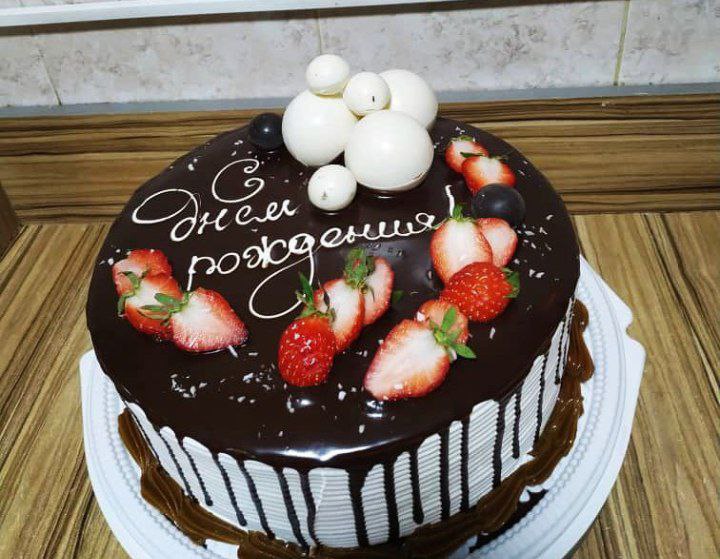 С
днем
рождения!